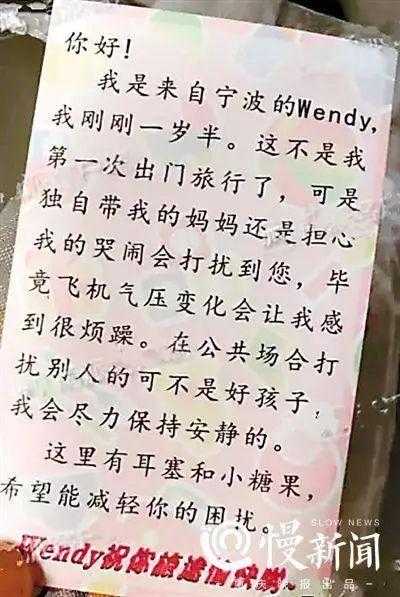 你好!
我是来自宁波的Wendy,
我刚刚一岁半。这不是我
第一次出门旅行了，可是
独自带我的妈妈还是担心
我的哭闹会打扰到您，毕
竟飞机气压变化会让我感
到很烦躁。在公共场合打
扰别人的可不是好孩子，
我会尽力保持安静的。
这里有耳塞和小糖果，
希望能减轻你的困扰。
Wendy祝你旅途愉快哟
SLOW NEWS
慢新闻
报出品